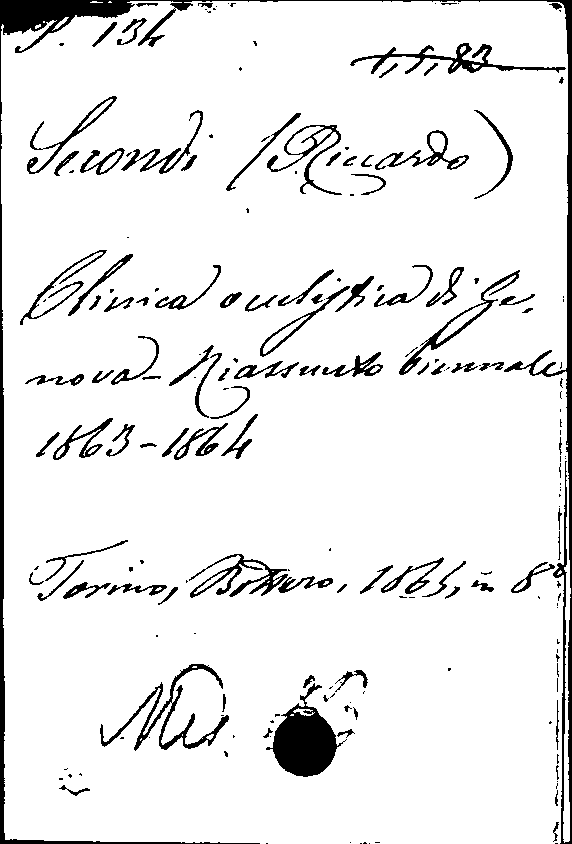 P. 134
1, 5, 83
Secondi (Riccardo)
Clinica oculistica di Ge-
nova - Riassunto biennale
1863-1864
Torino, Botero, 1865, in 8°